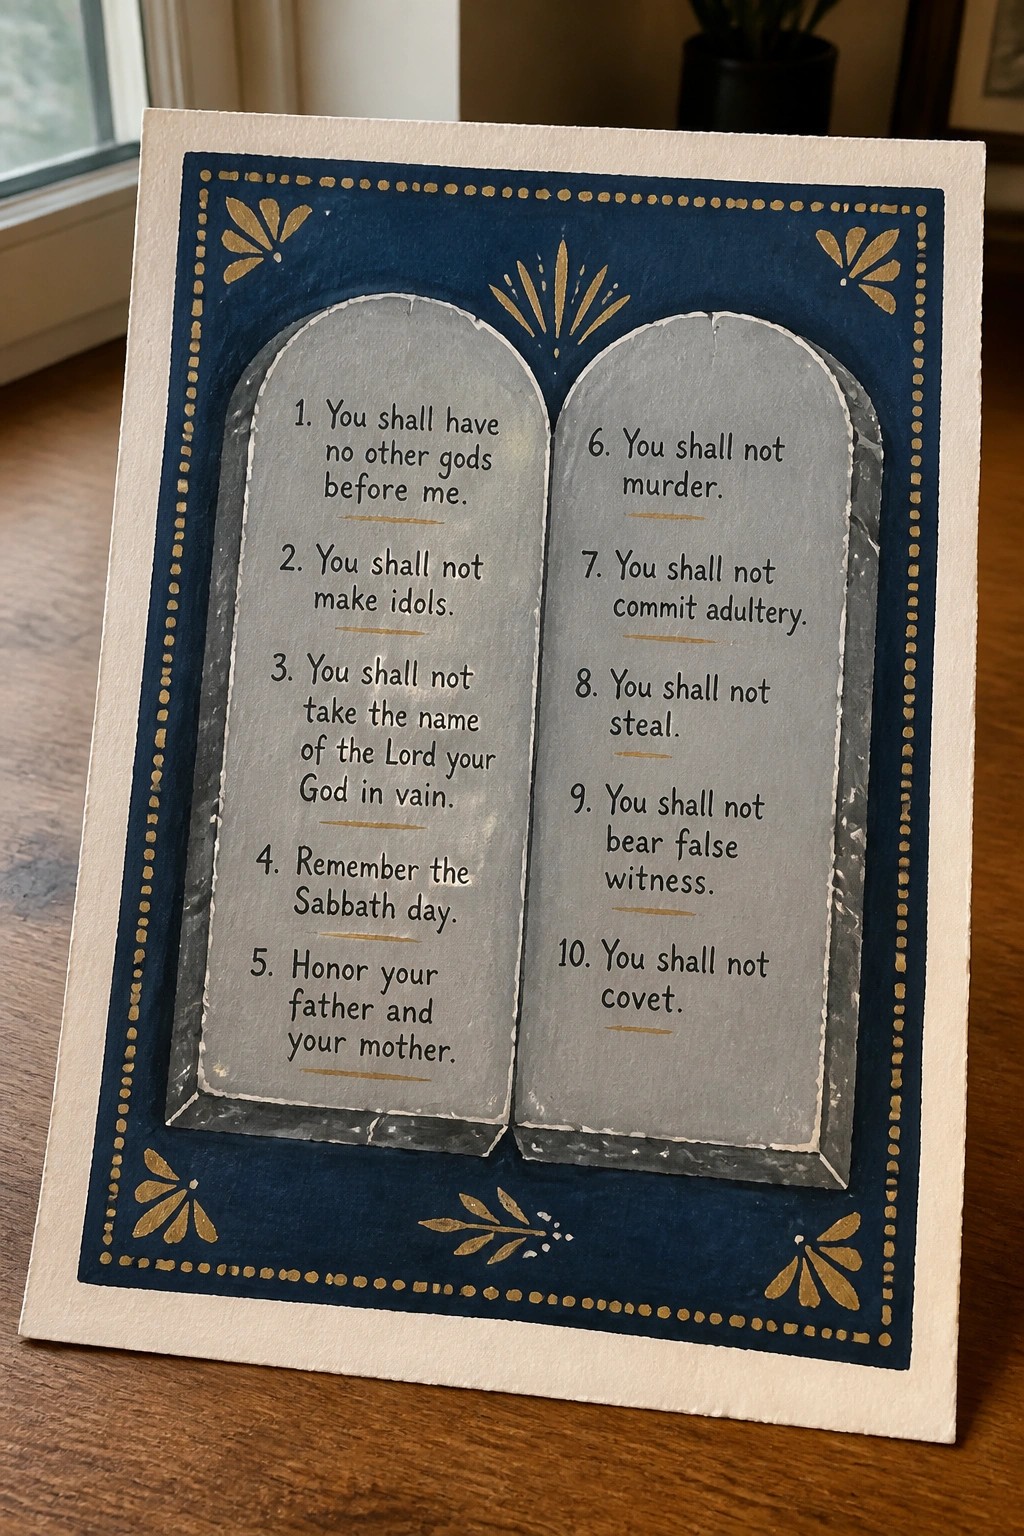 1. You shall have
no other gods
before me.
2. You shall not
make idols.
3. You shall not
take the name
of the Lord your
God in vain.
4. Remember the
Sabbath day.
5. Honor your
father and
your mother.
6. You shall not
murder.
7. You shall not
commit adultery.
8. You shall not
steal.
9. You shall not
bear false
witness.
10. You shall not
covet.